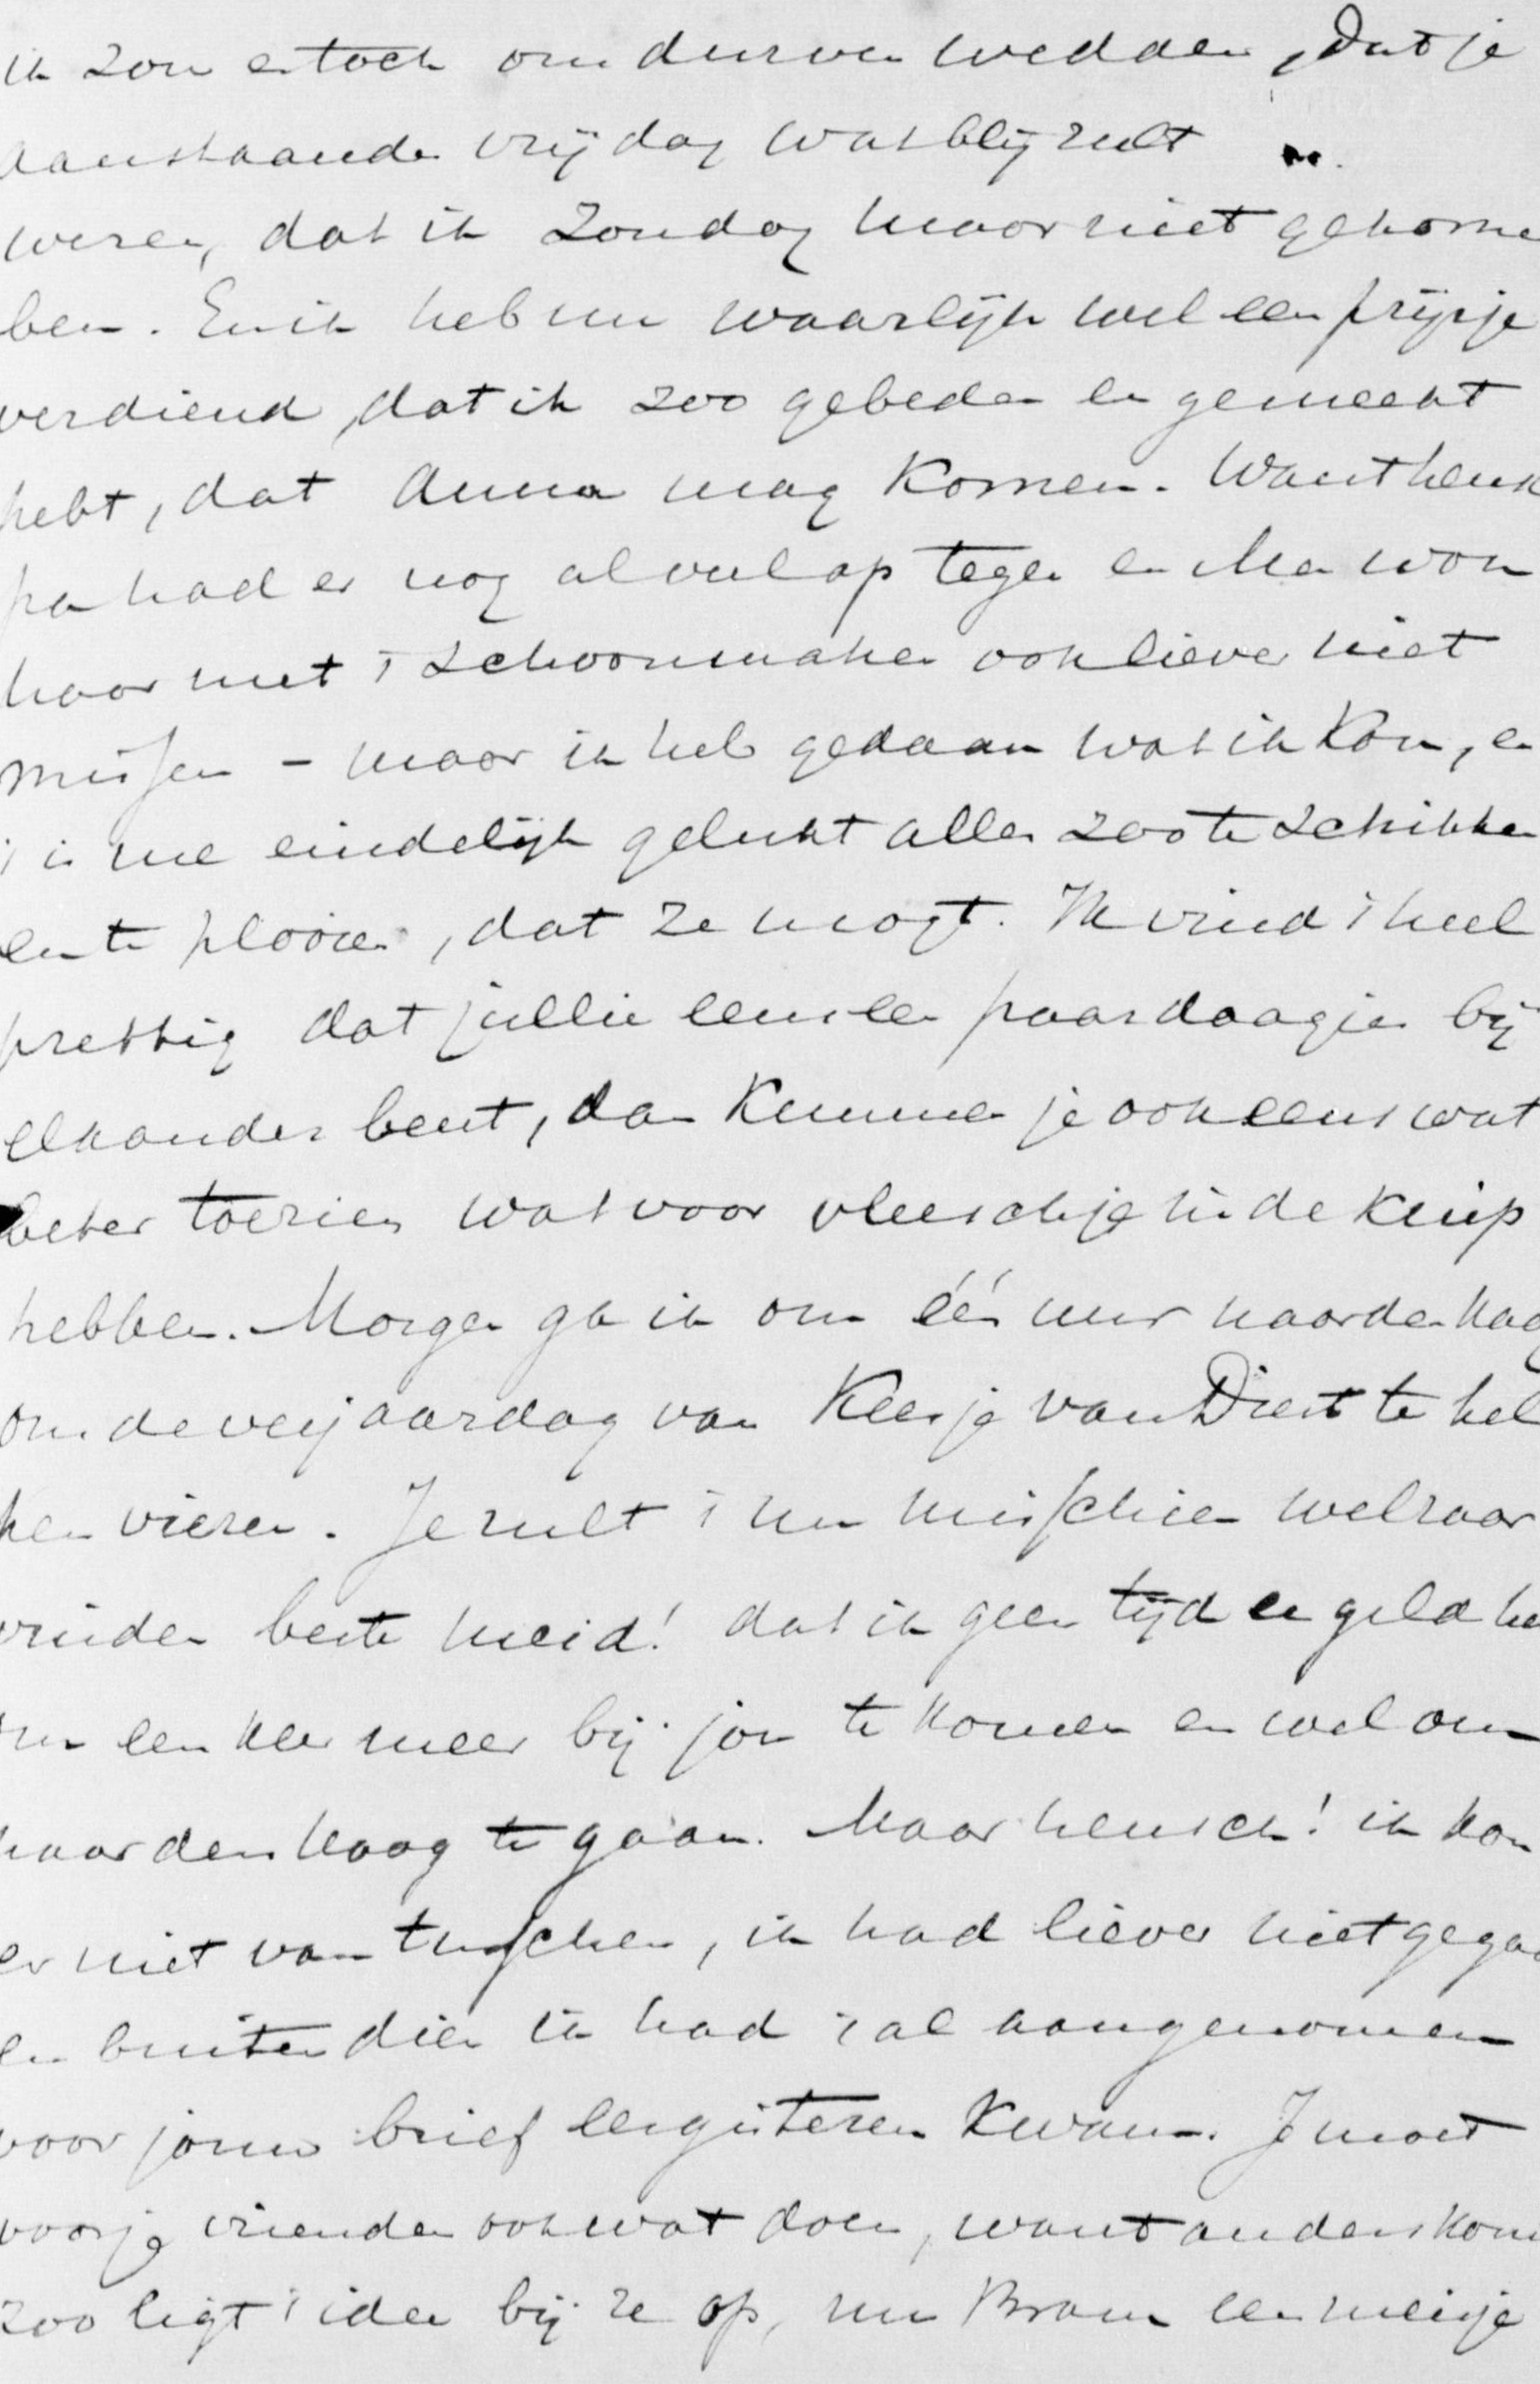 ik zou er toch om durven wedden, dat je
aanstaande vrijdag wat blij zult
wezen, dat ik Zondag maar niet gekome
ben. En ik heb nu waarlijk wel een prijsje
verdiend, dat ik zoo gebeden en gesmeekt
hebt, dat Anna mag komen. Want heusch
pa had er nog al veel op tegen en Ma wou
haar met 't schoonmaken ook liever niet
missen – maar ik heb gedaan wat ik kon, en
't is me eindelijk gelukt alles zoo te schikken
en te plooien, dat ze mogt. Ik vind 't heel
prettig dat jullie eens een paar daagjes bij
elkander bent, dan kunnen je ook eens wat
beter toezien wat voor vleeschje we in de kuip
hebben. Morgen ga ik om één uur naar den Haag
om de verjaardag van Keesje van Diest te hel
pen vieren. Je zult 't nu misschien wel raar
vinden beste meid! dat ik geen tijd en geld heb
om een keer meer bij jou te komen en wel om
naar den Haag te gaan. Maar heusch! ik kon
er niet van tusschen, ik had liever niet gegaan
en buitendien ik had 't al aangenomen
voor jouw brief eergisteren kwam. Je moet
voor je vrienden ook wat doen, want anders kom
zoo ligt 't idee bij ze op, nu Bram een meisje